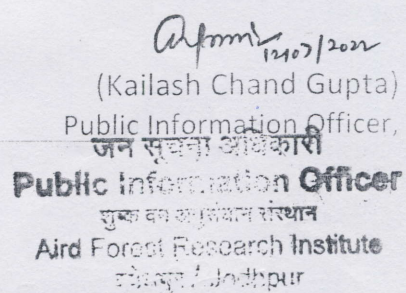 12/07/2022
(Kailash Chand Gupta)
Public Information Officer,
जन सूचना अधिकारी
Public Information Officer
शुष्क वन अनुसंधान संस्थान
Aird Forest Research Institute
जोधपुर / Jodhpur